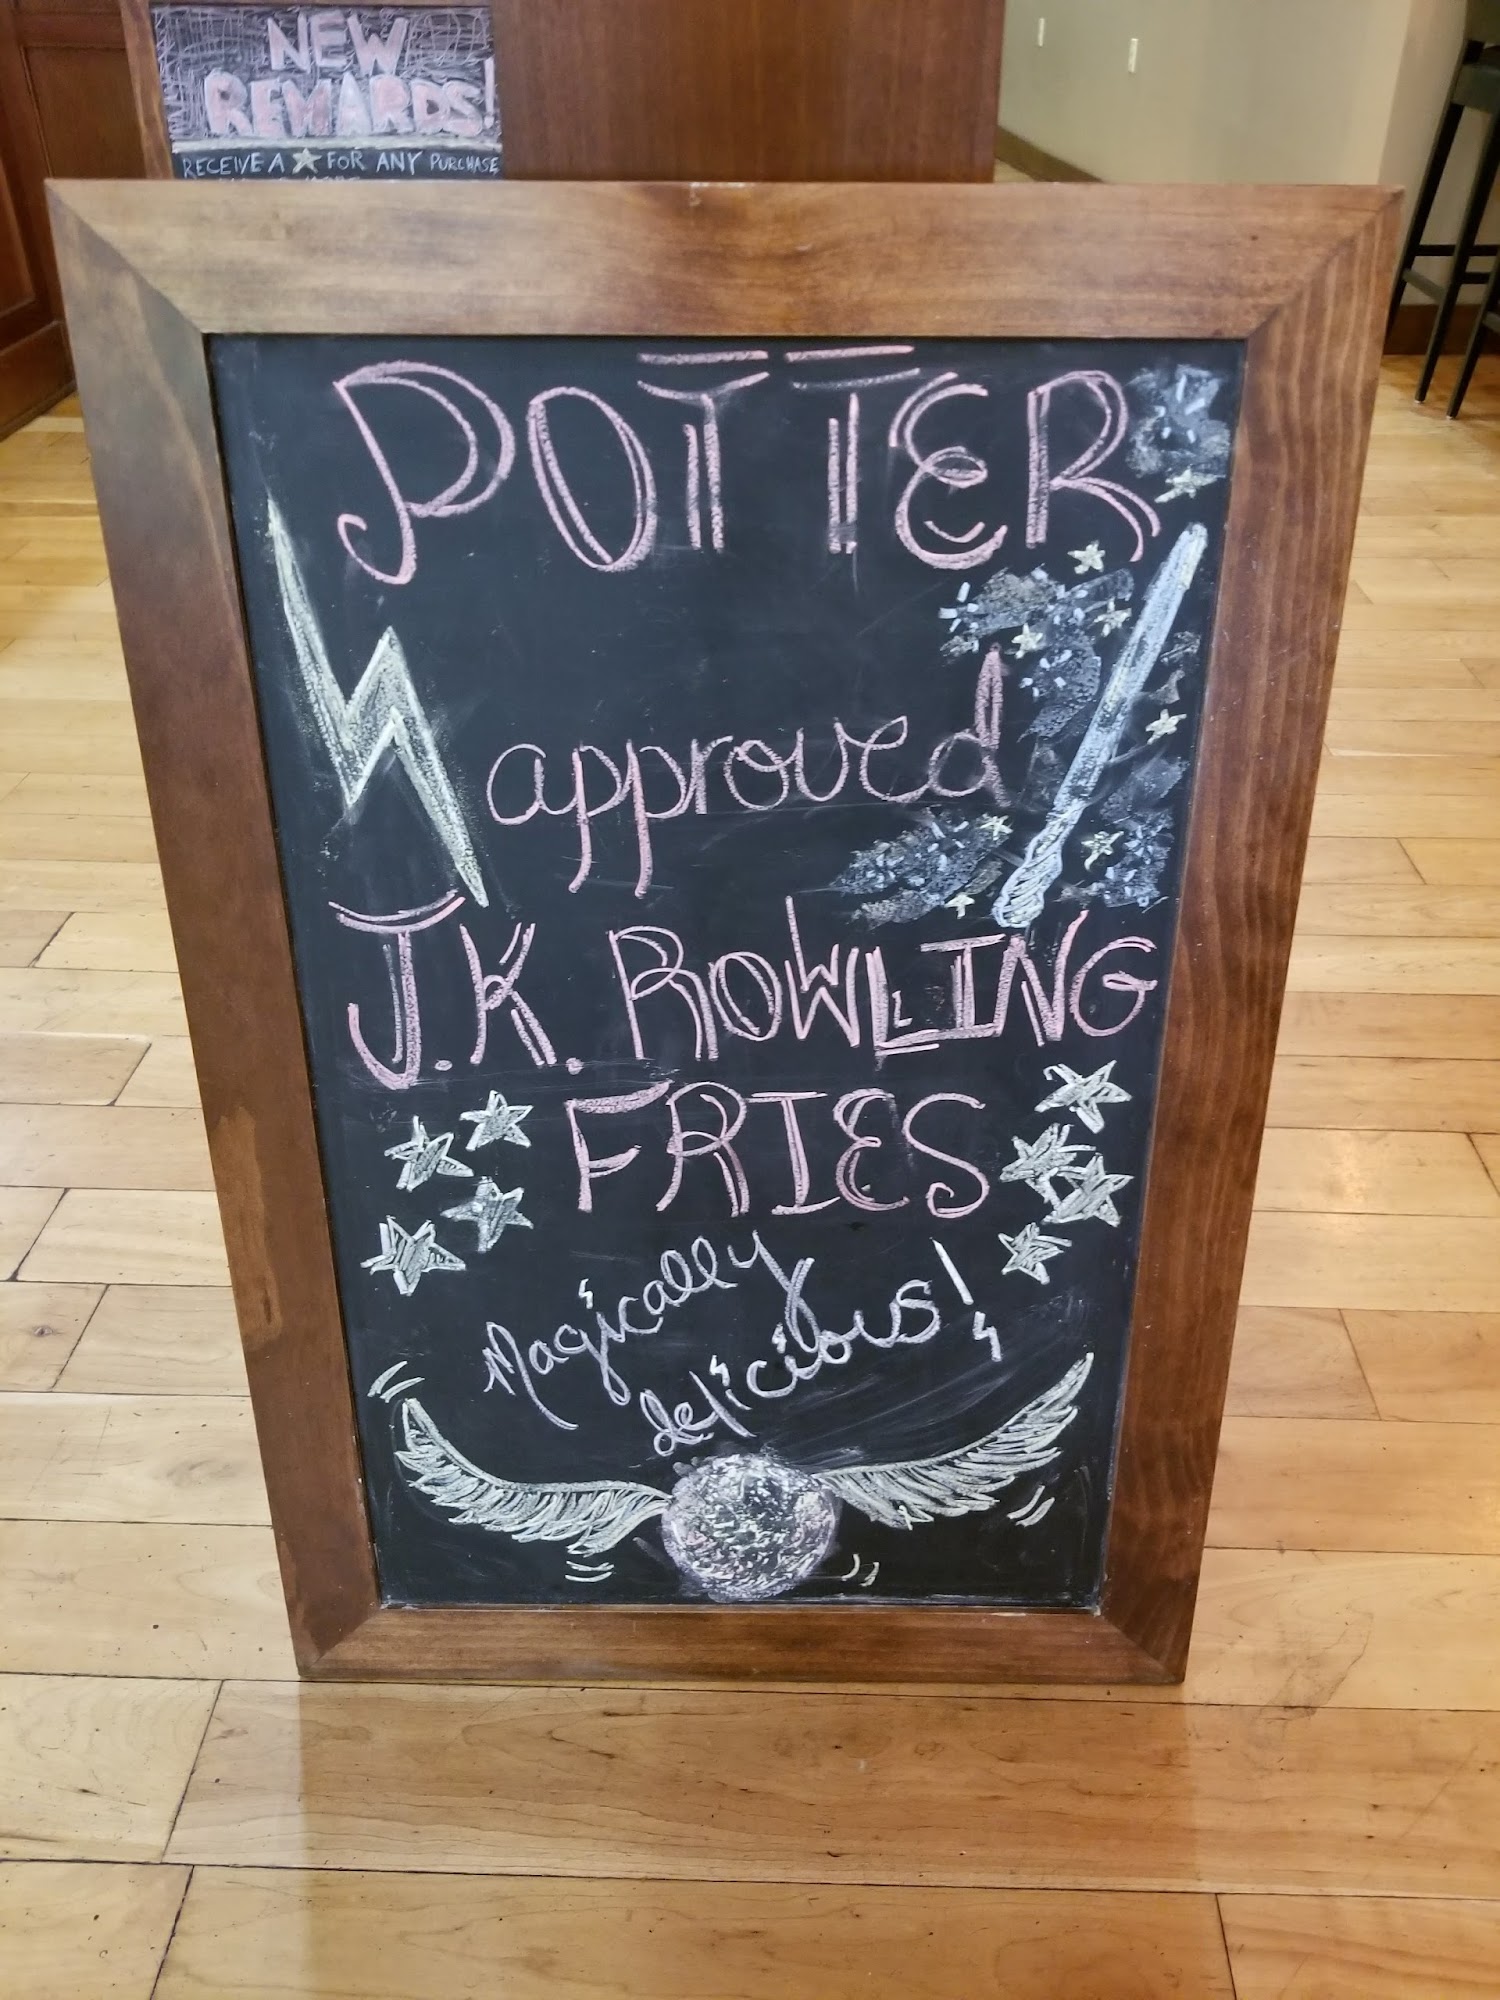 NEW
REWARDS!
RECEIVE A ★ FOR ANY PURCHASE
POTTER
approved
J.K. ROWLING
FRIES
Magically
delicious!